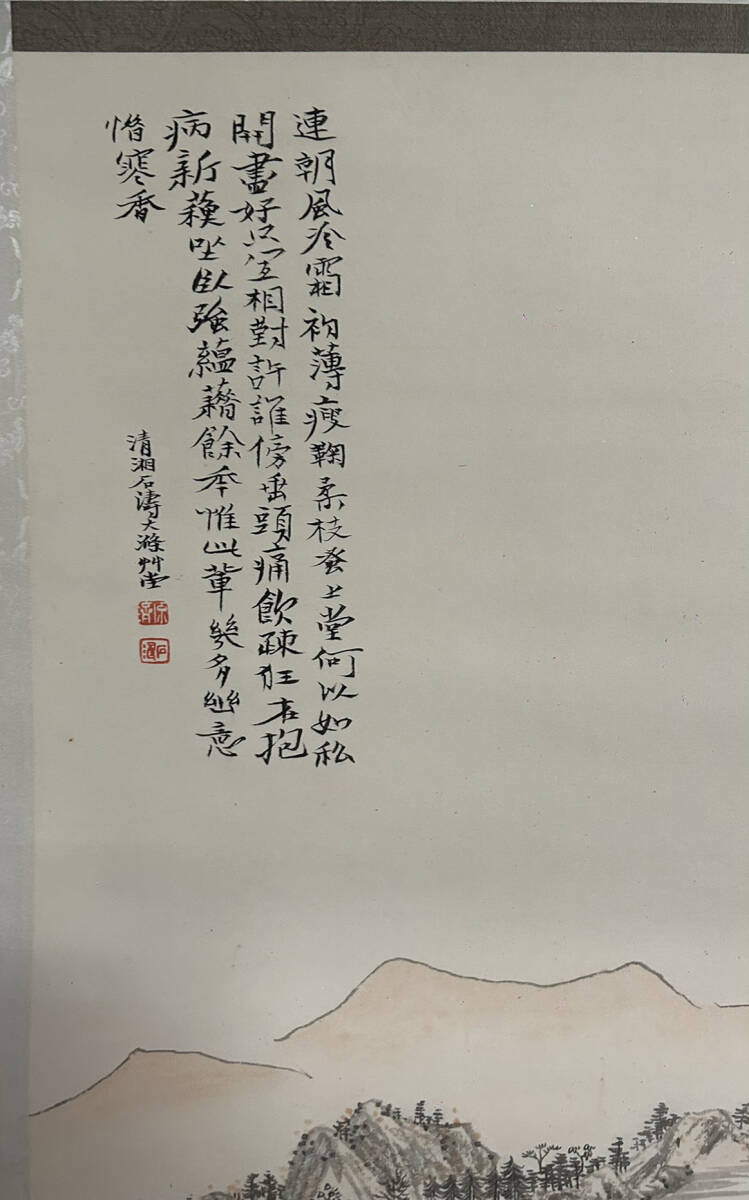 連朝風冷霜初薄瘦鞠柔枝蚤上堂何以如松
開盡好只宜相對許誰傍垂頭痛飲疎狂在抱
病新蘓坐臥強蘊藉餘年惟此輩幾多幽意
惜寒香
清湘石濤大滌艸堂